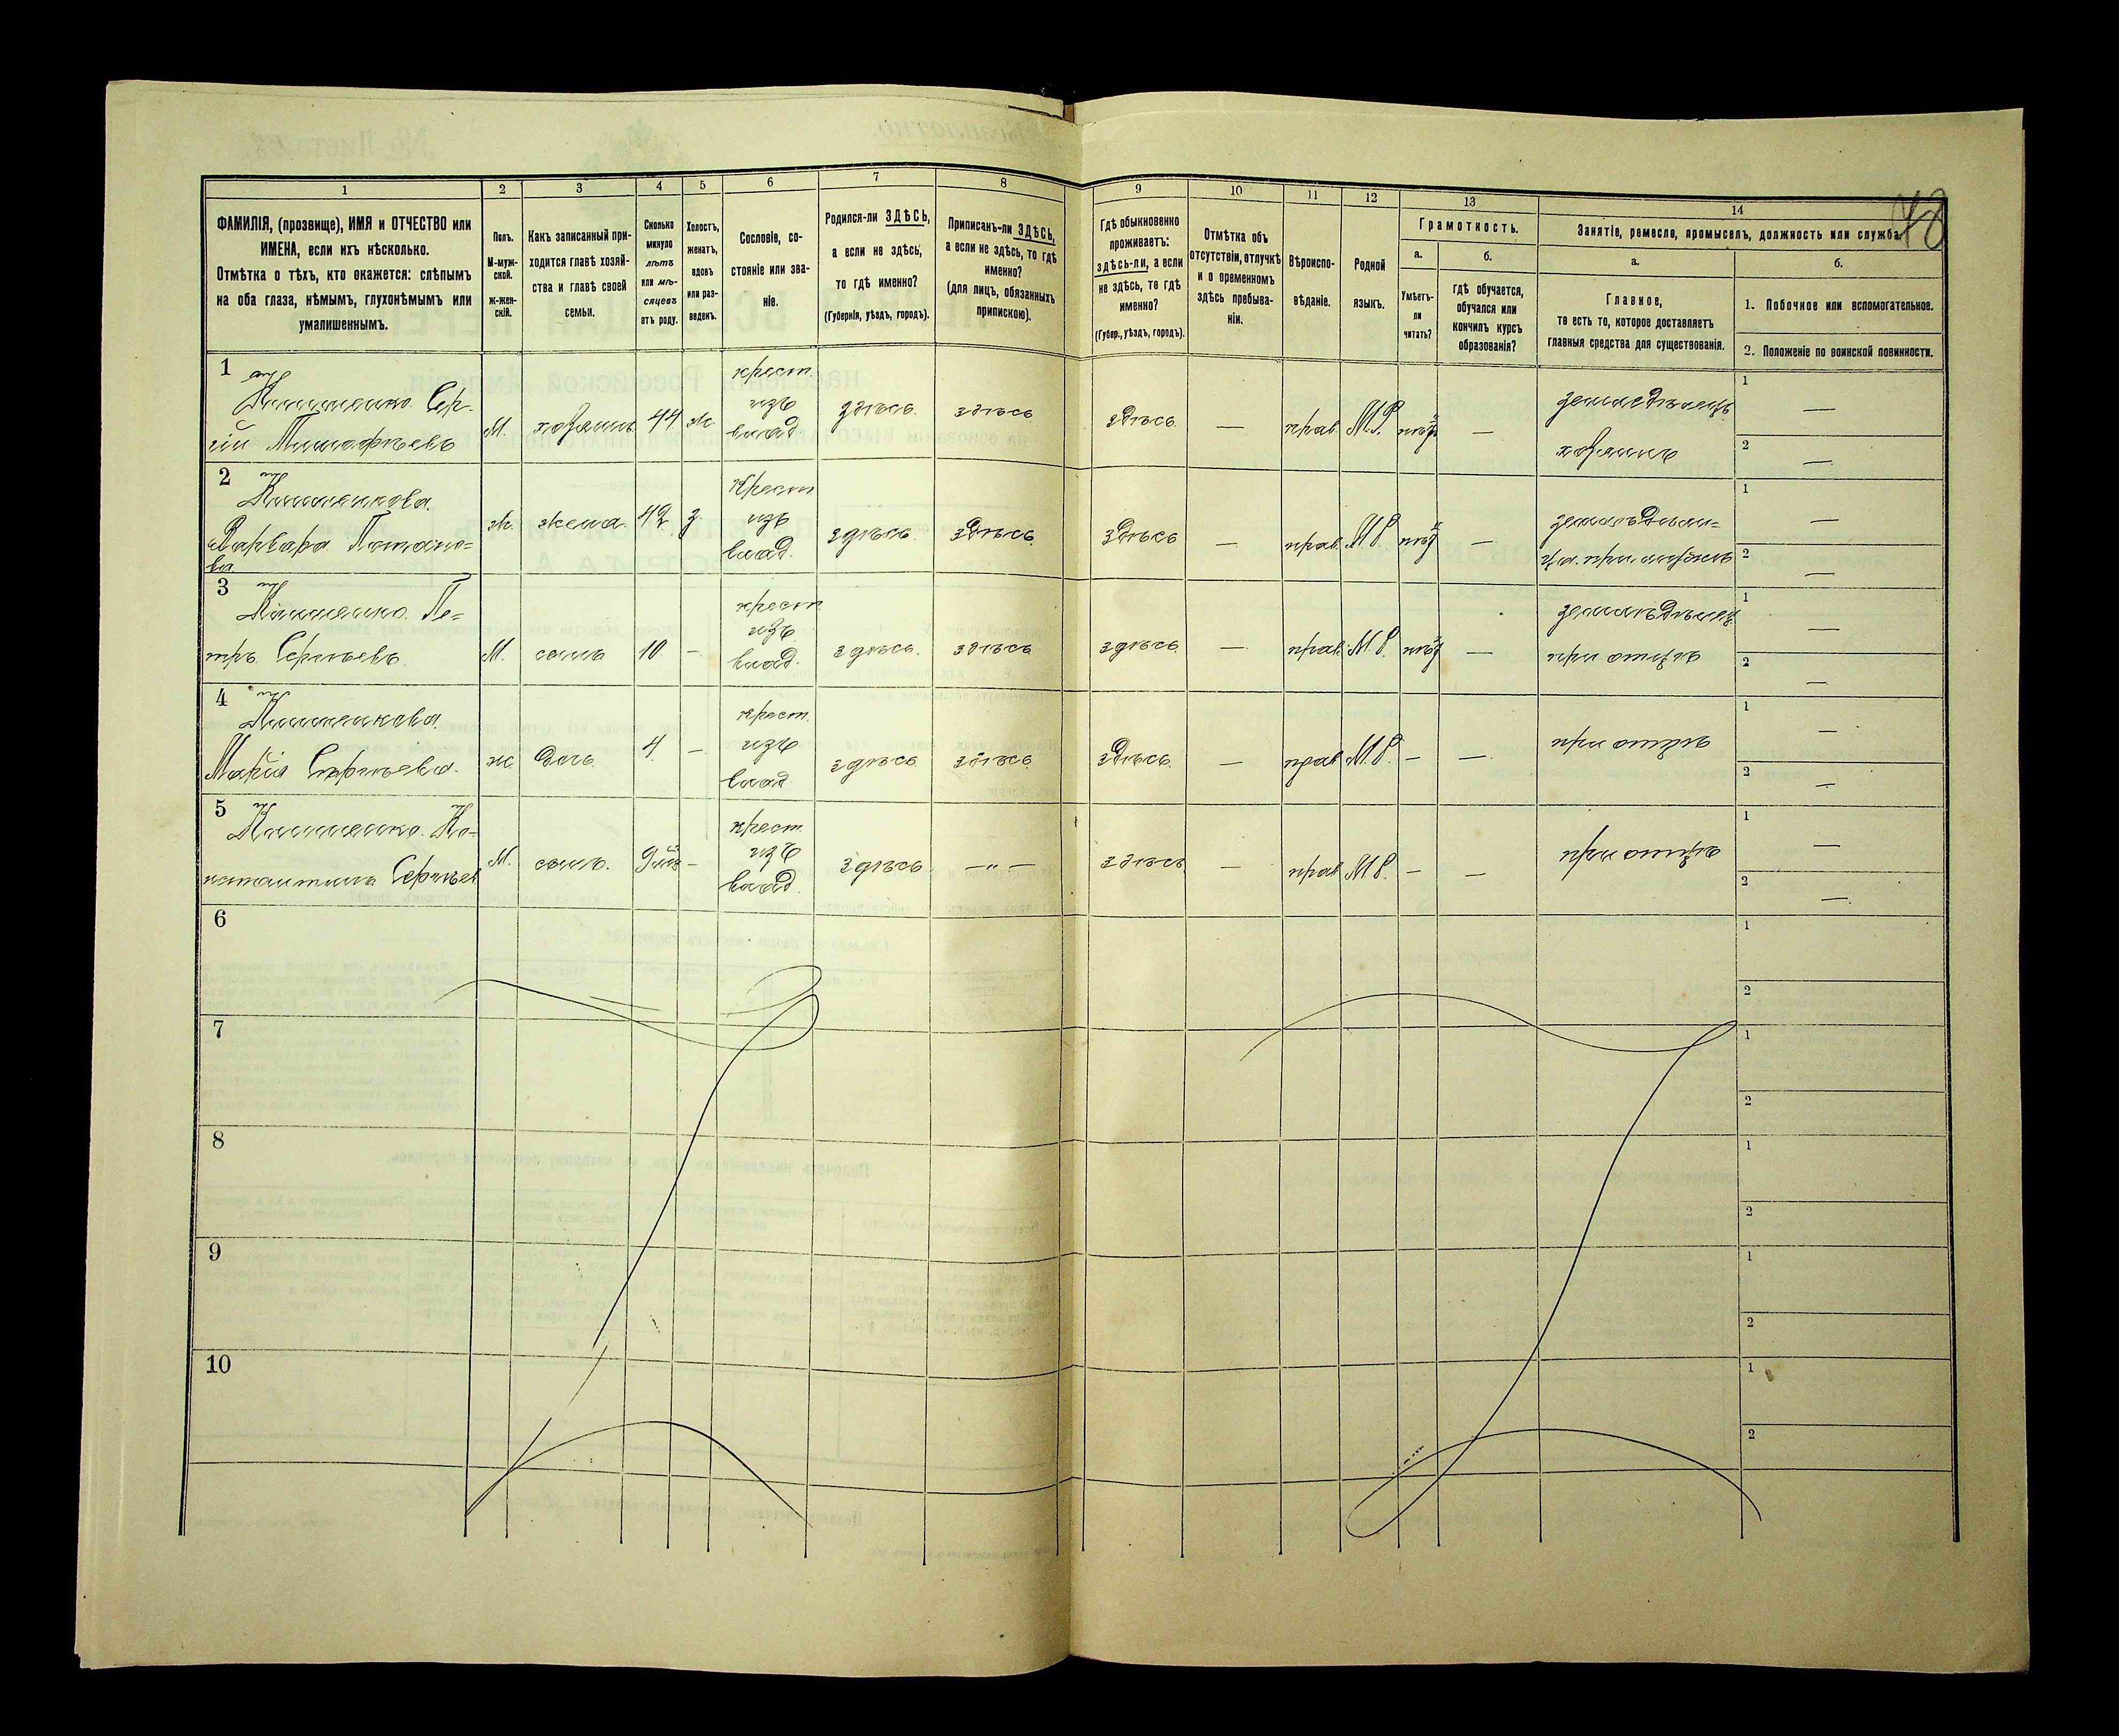 48
1
2
3
4
5
6
7
8
9
10
11
12
13
14
ФАМИЛІЯ, (прозвище), ИМЯ и ОТЧЕСТВО или
ИМЕНА, если ихъ нѣсколько.
Отмѣтка о тѣхъ, кто окажется: слѣпымъ
на оба глаза, нѣмымъ, глухонѣмымъ или
умалишеннымъ.
Полъ.
М-муж-
ской.
ж-жен-
скій.
Какъ записанный при-
ходится главѣ хозяй-
ства и главѣ своей
семьи.
Сколько
минуло
лѣтъ
или мѣ-
сяцевъ
отъ роду.
Холостъ,
женатъ,
вдовъ
или раз-
веденъ.
Сословіе, со-
стояніе или зва-
ніе.
Родился-ли ЗДѢСЬ,
а если не здѣсь,
то гдѣ именно?
(Губернія, уѣздъ, городъ).
Приписанъ-ли ЗДѢСЬ,
а если не здѣсь, то гдѣ
именно?
(для лицъ, обязанныхъ
припискою).
Гдѣ обыкновенно
проживаетъ:
здѣсь-ли, а если
не здѣсь, то гдѣ
именно?
(Губер., уѣздъ, городъ).
Отмѣтка объ
отсутствіи, отлучкѣ
и о временномъ
здѣсь пребыва-
ніи.
Вѣроиспо-
вѣданіе.
Родной
языкъ.
Грамотность.
а.
Умѣетъ-
ли
читать?
б.
гдѣ обучается,
обучался или
кончилъ курсъ
образованія?
Занятіе, ремесло, промыселъ, должность или служба
а.
Главное,
то есть то, которое доставляетъ
главныя средства для существованія.
б.
1. Побочное или вспомогательное.
2. Положеніе по воинской повинности.
1
Сер-
гій Тимофѣевъ
М.
хозяинъ
44
ж
крест.
изъ
влад.
здѣсь.
здѣсь
здѣсь.
—
прав.
М.Р.
—
земледѣлецъ
хозяинъ
1 —
2 —
2
Варвара Потапо-
ва
ж.
жена.
42
з.
крест
изъ
влад.
здѣсь.
здѣсь.
здѣсь
—
прав.
М.Р.
—
земледѣли-
ца при мужѣ
1 —
2 —
3
Пе-
тръ Сергѣевъ.
М.
сынъ
10
—
крест
изъ
влад.
здѣсь.
здѣсь
здѣсь.
—
прав.
М.Р.
—
земледѣлец.
при отцѣ
1 —
2 —
4
Марія Сергѣева.
ж
дочь
4
—
крест.
изъ
влад
здѣсь
здѣсь.
здѣсь.
—
прав
М.Р.
—
—
при отцѣ
1 —
2 —
5
Ко-
нстантинъ Сергѣев
М.
сынъ.
—
крест.
изъ
влад.
здѣсь
—„—
здѣсь
—
прав
М.Р.
—
—
при отцѣ
1 —
2 —
6
1
2
7
1
2
8
1
2
9
1
2
10
1
2